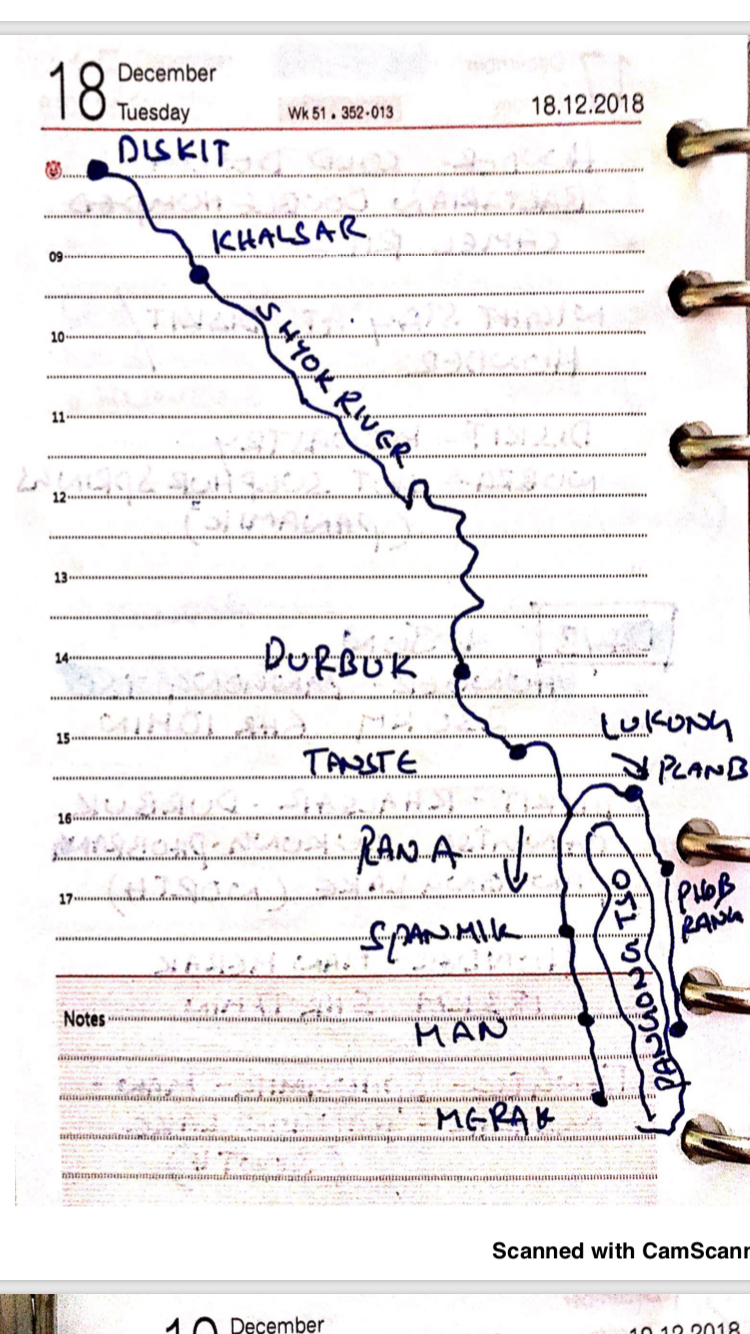 18 December
Tuesday
Wk 51 . 352-013
18.12.2018
DISKIT
KHALSAR
09
SHYOK RIVER
10
11
12
13
DURBUK
14
LUKUNG
15
TANSTE
PLAN B
16
RAN A
17
PHOB
RANG
SPANMIK
PANGONG TSO
Notes
MAN
MERAK
Scanned with CamScanr
December
19.12.2018